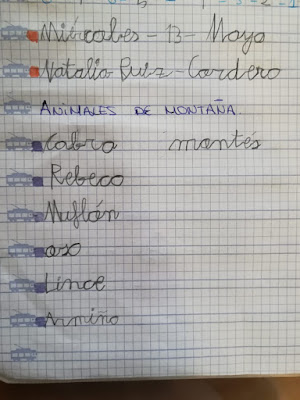 Miércoles - 13 - Mayo
Natalia Ruiz - Cordero
ANIMALES DE MONTAÑA.
Cabra montés
Rebeco
Muflón
oso
Lince
Armiño